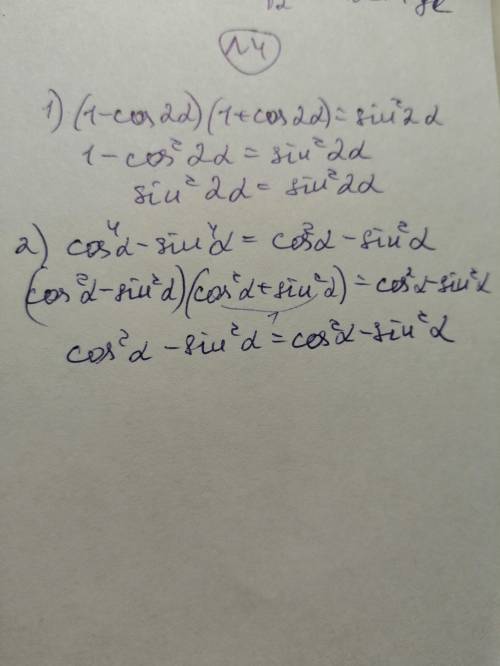 14
1) (1-cos2α)(1+cos2α)=sin²2α
1-cos²2α=sin²2α
sin²2α=sin²2α
2) cos⁴α-sin⁴α=cos²α-sin²α
(cos²α-sin²α)(cos²α+sin²α)=cos²α-sin²α
1
cos²α-sin²α=cos²α-sin²α